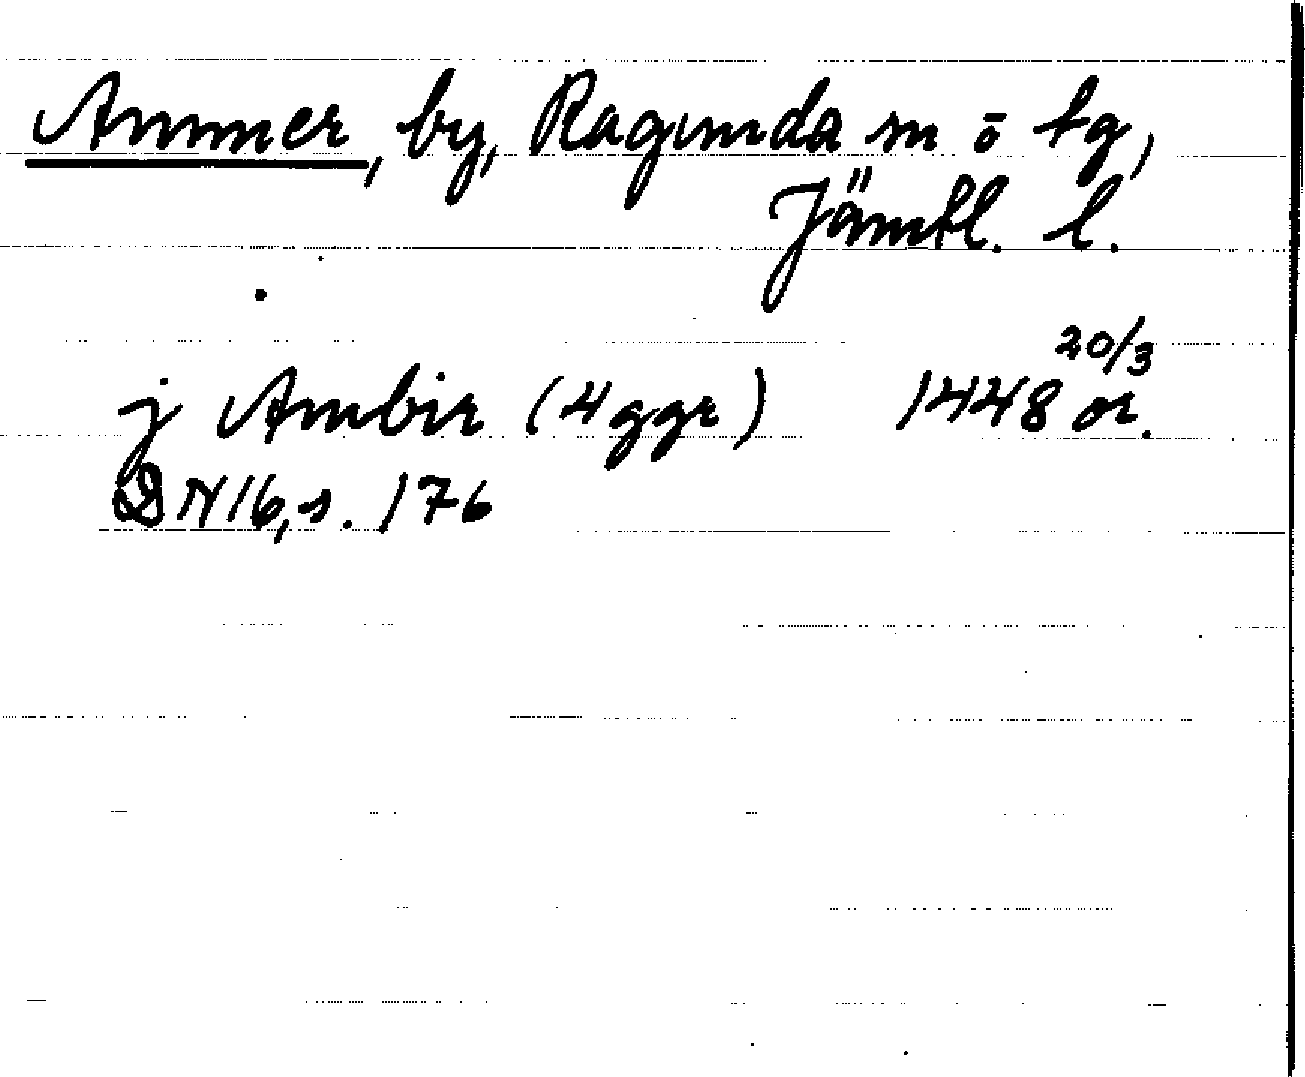 Ammer, by, Ragunda sn o tg,
Jämtl. l.
j Ambir (4 ggr) 1448 20/3 or.
DN 16, s. 176